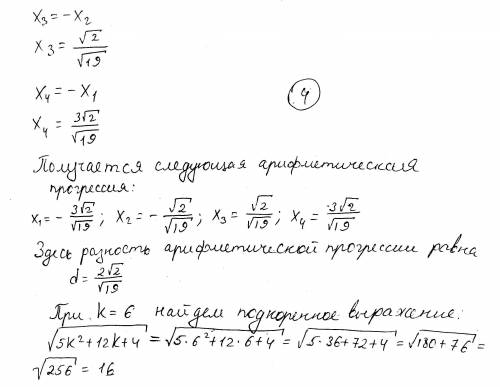 x₃ = -x₂
x₃ = √2/√19
x₄ = -x₁
4
x₄ = 3√2/√19
Получается следующая арифметическая
прогрессия:
x₁ = -3√2/√19; x₂ = -√2/√19; x₃ = √2/√19; x₄ = 3√2/√19
Здесь разность арифметической прогрессии равна
d = 2√2/√19
При k = 6 найдем подкоренное выражение:
√(5k²+12k+4) = √(5·6²+12·6+4) = √(5·36+72+4) = √(180+76) =
√256 = 16